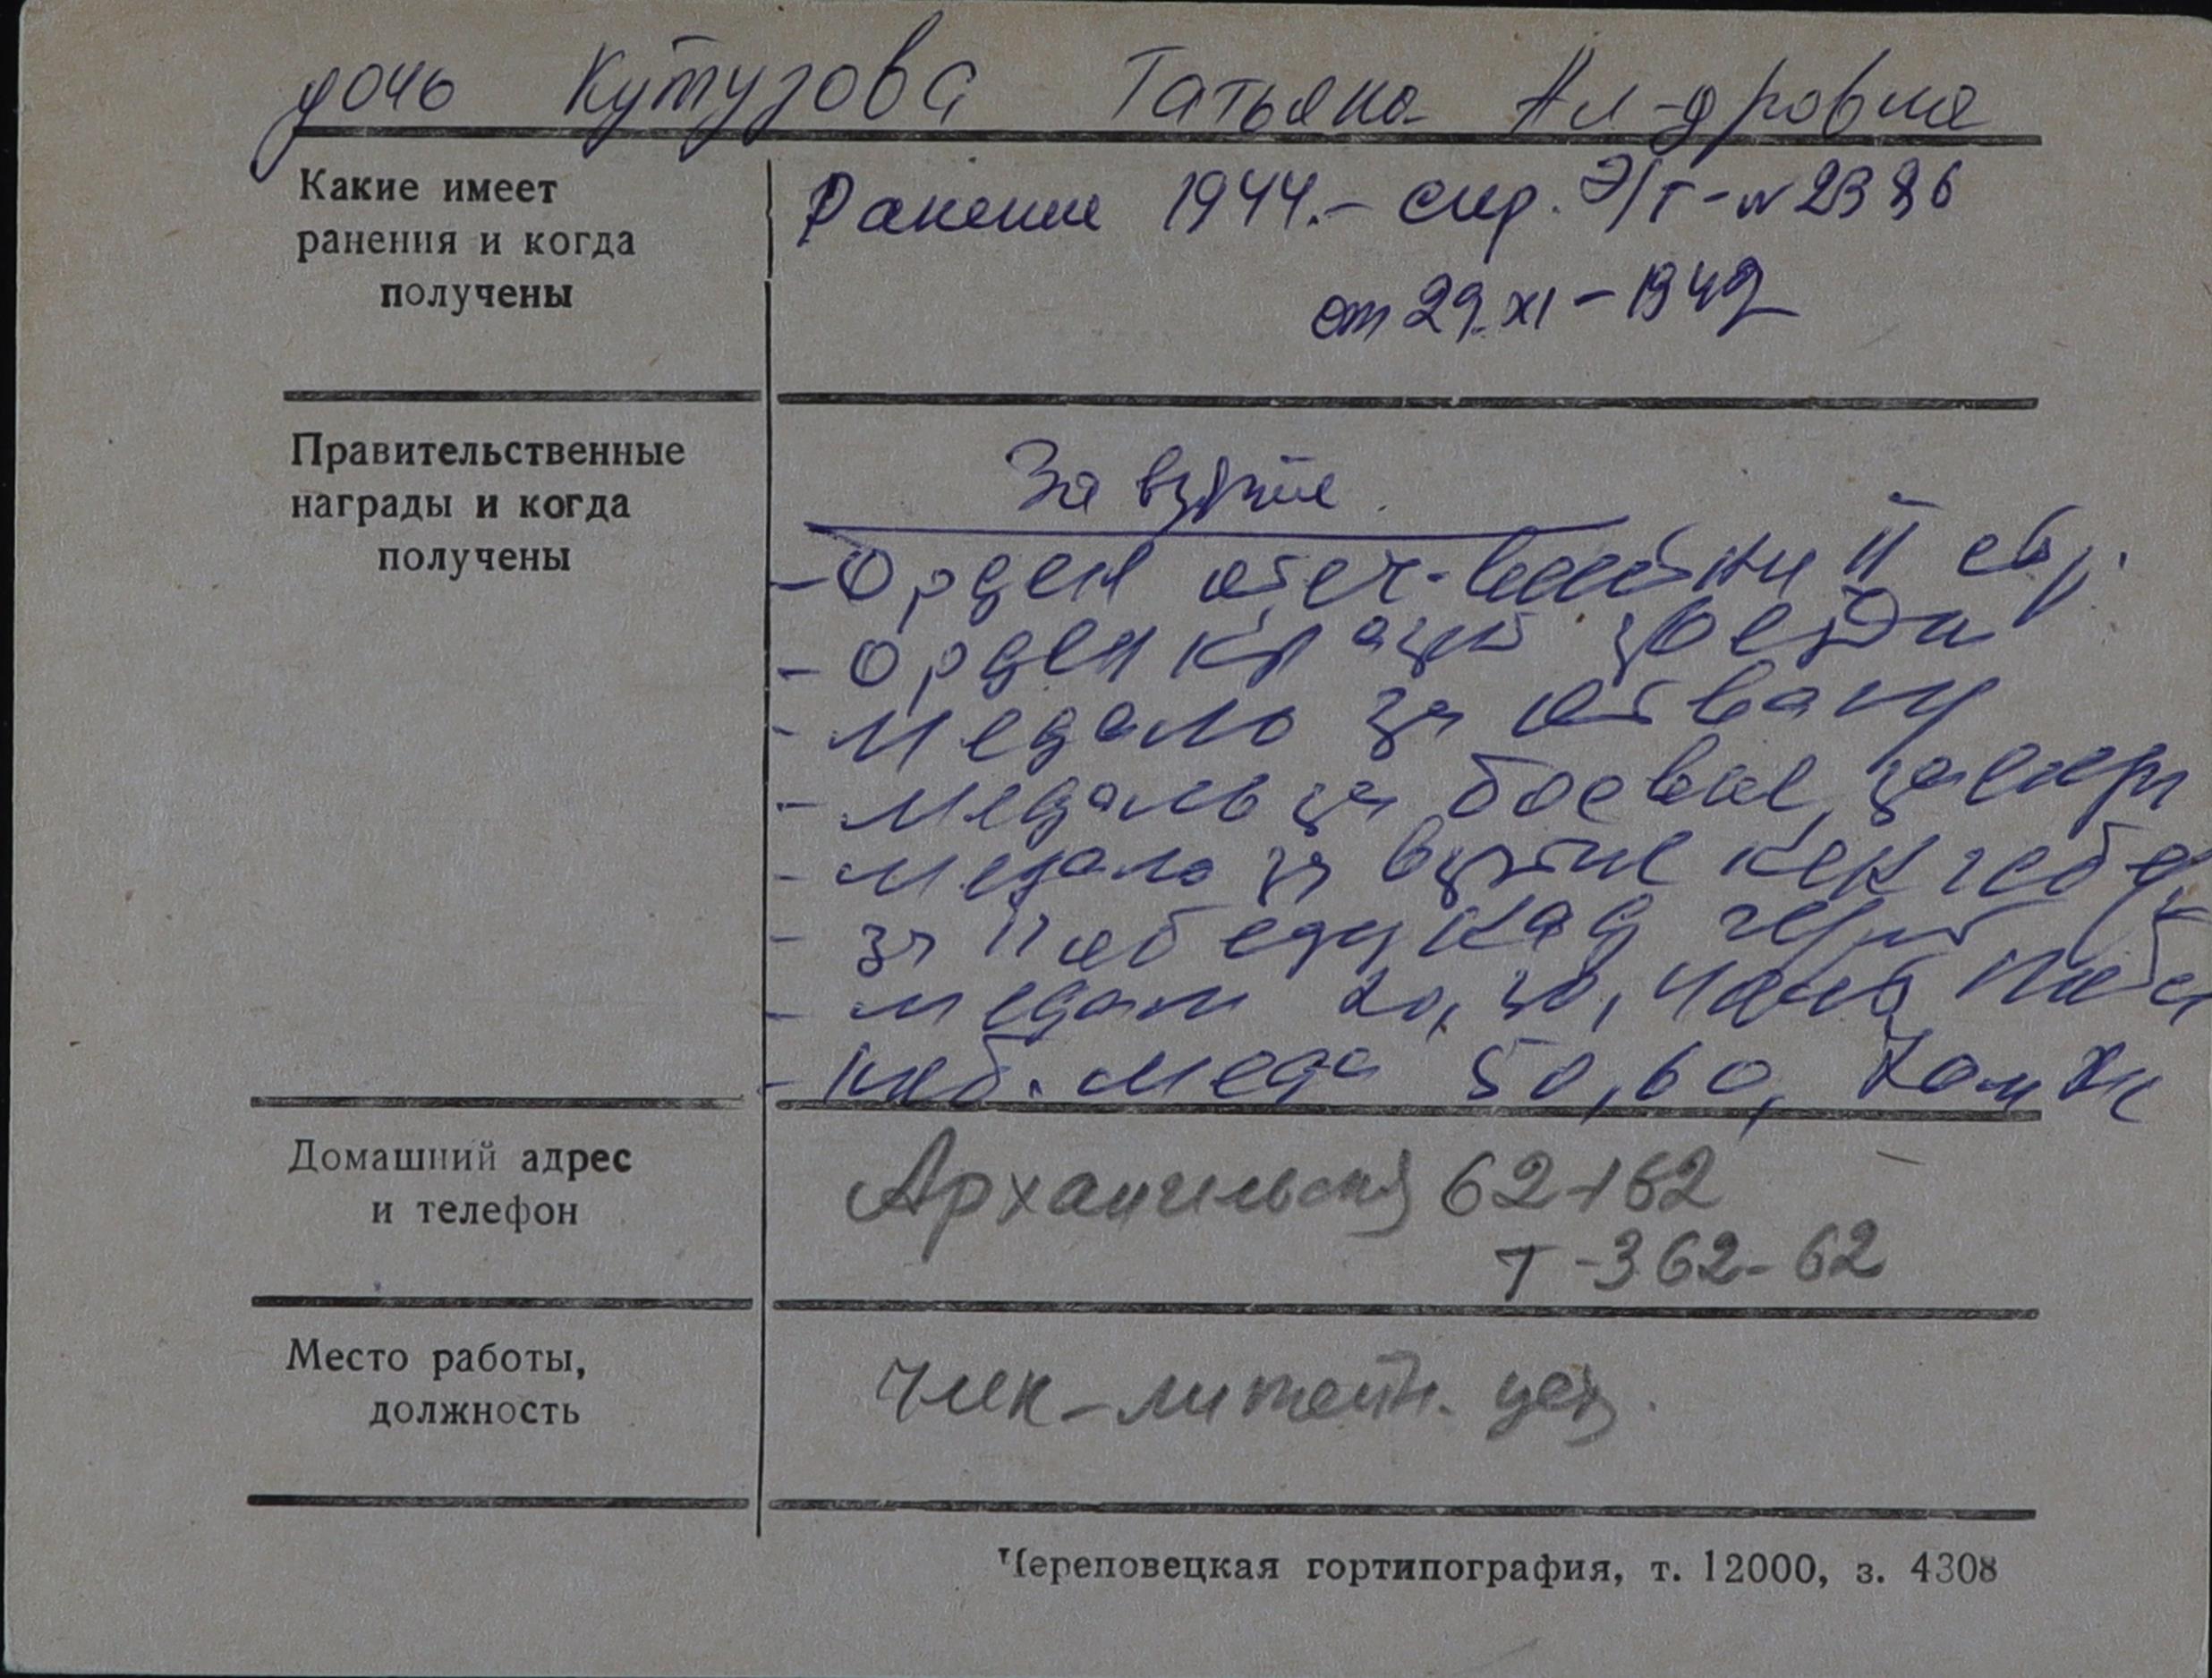 дочь Кутузова Татьяна Ал-дровна
Какие имеет
ранения и когда
получены
Ранение 1944.- спр. Э/Г-N 2386
от 29.XI-1942
Правительственные
награды и когда
получены
За взятие
-Орден отеч-венной II ст.
-Орден красной звезды
-медаль за отвагу
-медаль за боевые заслуги
-медаль за взятие Кенигсберг
-за победу над герм
-медали 20, 30,
-юб. меда 50, 60,
Домашний адрес
и телефон
Архангельская 62-162
Т-3 62-62
Место работы,
должность
ЧМК-литейн. цех.
Череповецкая гортипография, т. 12000, з. 4308